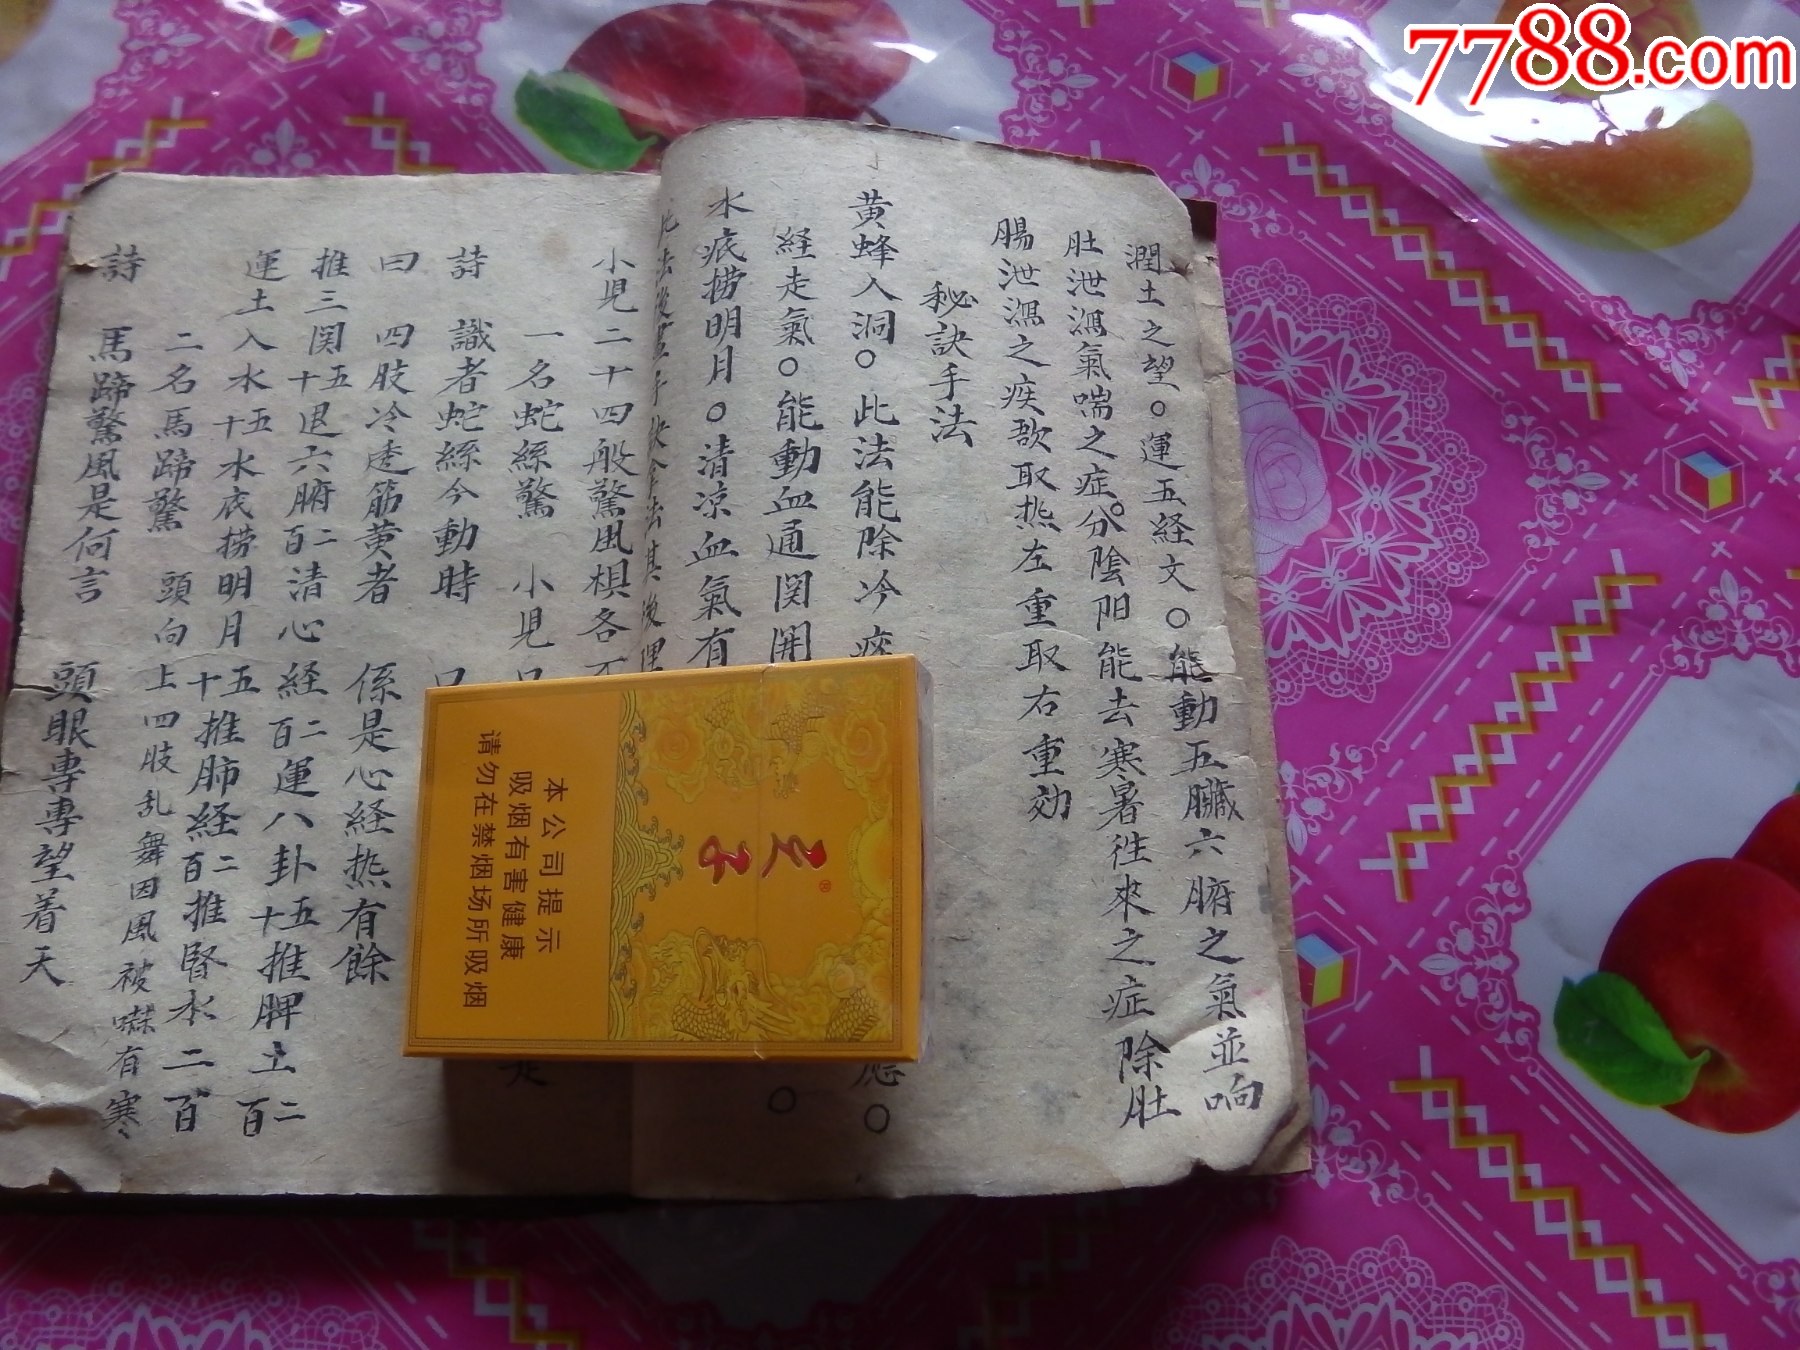 7788.com
潤土之望○運五経文○能動五臟六腑之氣並响
肚泄瀉氣喘之症○分陰阳能去寒暑徃來之症除肚
腸泄瀉之疾歌取热左重取右重効
秘訣手法
黄蜂入洞○此法能除冷痰
應○
経走氣○能動血通関開
○
水底捞明月○清凉血氣有
小児二十四般驚風棋各不
一名蛇絲驚 小児口
詩 識者蛇絲今動時 口
曰 四肢冷逶筋黄者 係是心経热有餘
推三関十五退六腑百二清心経百二運八卦十五推脾土百二
運土入水十五水底捞明月十五推肺経百二推腎水二百
二名馬蹄驚 頭向上四肢乱舞因風被嚇有寒
詩 馬蹄驚風是何言 頭眼專專望着天
本公司提示
吸烟有害健康
请勿在禁烟场所吸烟
天子
®